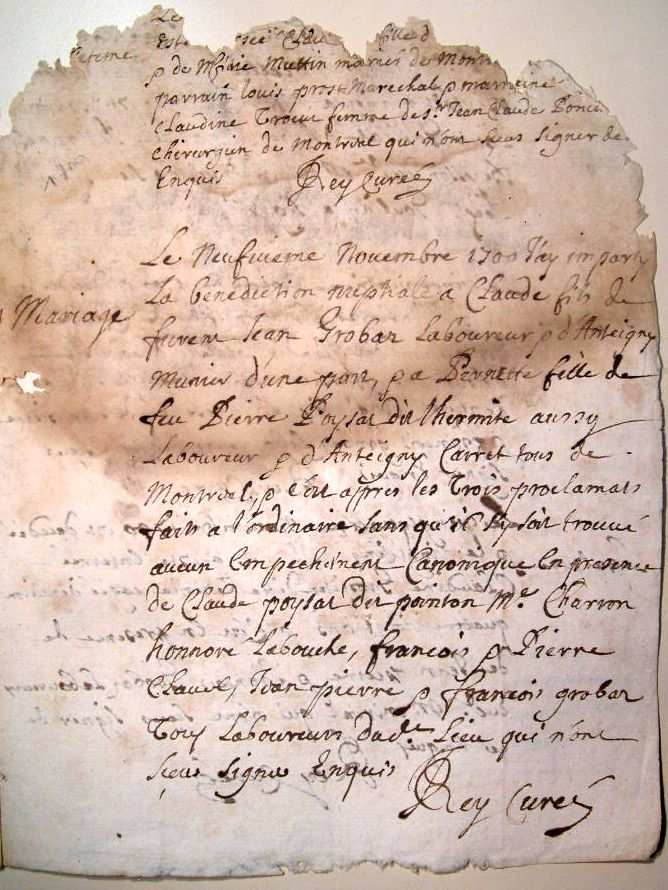 Le
Este Clau fille d
Beteme
& de Marie Muttin maries de Mont
parrain louis prost Marechal & marraine
Claudine Troccu femme de sr. Jean Claude Ponce
Chirurgien de Montreal qui n'ont sceus signer de
Enquis Rey Curé
Mariage
Le Neufvieme Novembre 1700 J'ay imparty
La benediction nuptiale a Claude fils de
furent Jean Grobaz Laboureur & d'Anteigny
Munier d'une part, & a Pernette fille de
feu Pierre Poysat dit l'hermite aussy
Laboureur & d'Anteigny Carret tous de
Montreal, & c'est appres les Trois proclamats
faits a l'ordinaire sans qu'il sy soit trouvé
aucun Empechement Canonique En presence
de Claude poysat dit pointon Me. Charron
honnoré Labouche, francois & Pierre
Clavel, Jean pierre & francois grobaz
Tous Laboureurs dud. Lieu qui n'ont
sceus signer Enquis
Rey Curé